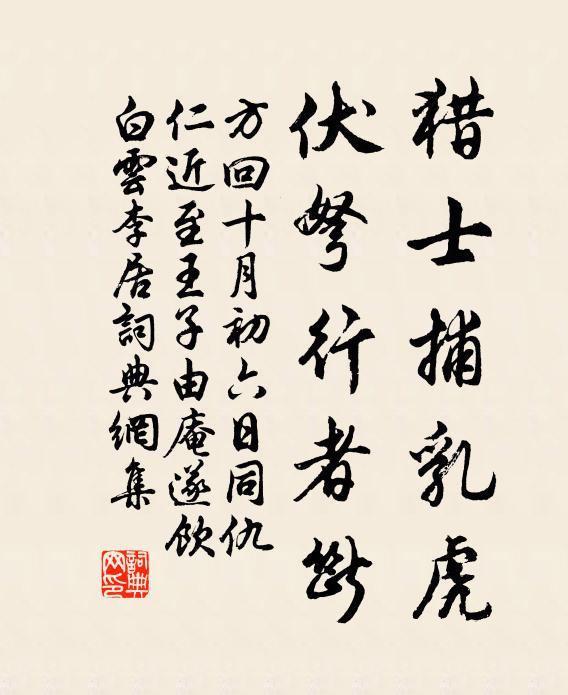 猎士捕乳虎
伏弩行者断
方回十月初六日同仇
仁近至王子由庵遂饮
白雲李居詞典網集
詞典网印